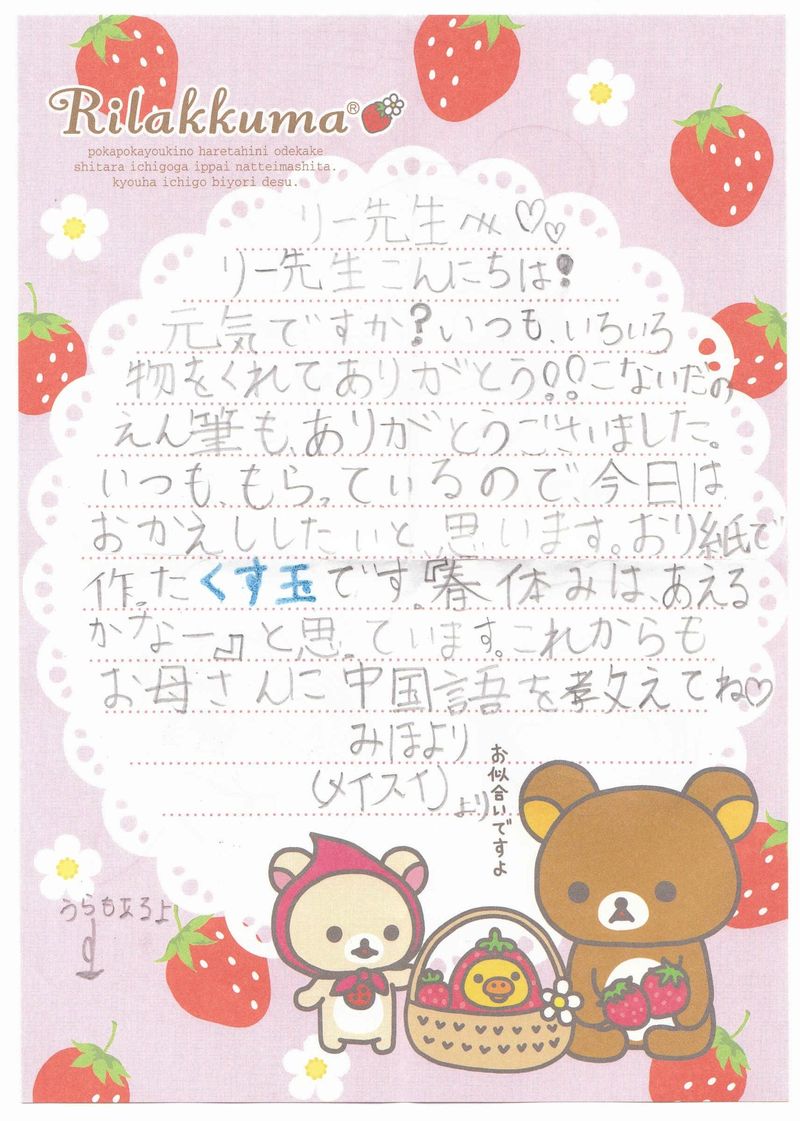 Rilakkuma®
pokapokayoukino haretahini odekake
shitara ichigoga ippai natteimashita.
kyouha ichigo biyori desu.
リー先生へ♡♡
リー先生こんにちは!
元気ですか?いつも、いろいろ
物をくれてありがとう!!こないだの
えん筆も、ありがとうございました。
いつも、もらっているので、今日は
おかえししたいと、思います。おり紙で
作ったくす玉です。『春休みは、あえる
かなー』と思っています。これからも
お母さんに中国語を教えてね♡
みほより
(メイスイ)より
お似合いですよ
うらもあるよ